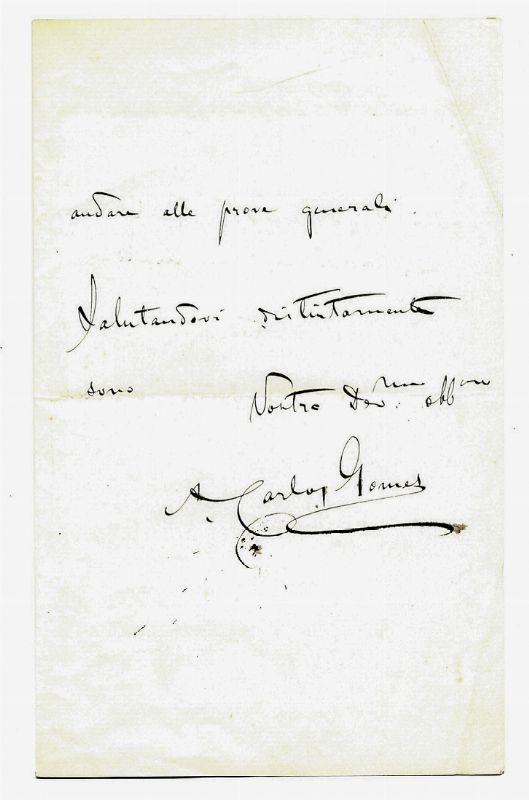 andare alle prove generali.
Salutandovi distintamente
sono
Vostro Dev.mo obbmo
A. Carlos Gomes